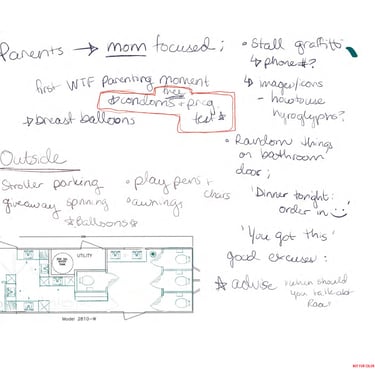 Parents → mom focused;
first WTF parenting moment
free
☆condoms + preg
test ☆
→ breast balloons
Outside
Stroller parking
giveaway spinning
☆Balloons☆
• play pens +
chairs
• awnings
• Stall graffiti
↳ phone #?
↳ images/icons
- how to use
hyroglyphs?
• Random things
on bathroom
door;
'Dinner tonight:
order in'
'You got this'
good excuses:
☆ advise (when should
you talk about
UTILITY
Model 2810-W